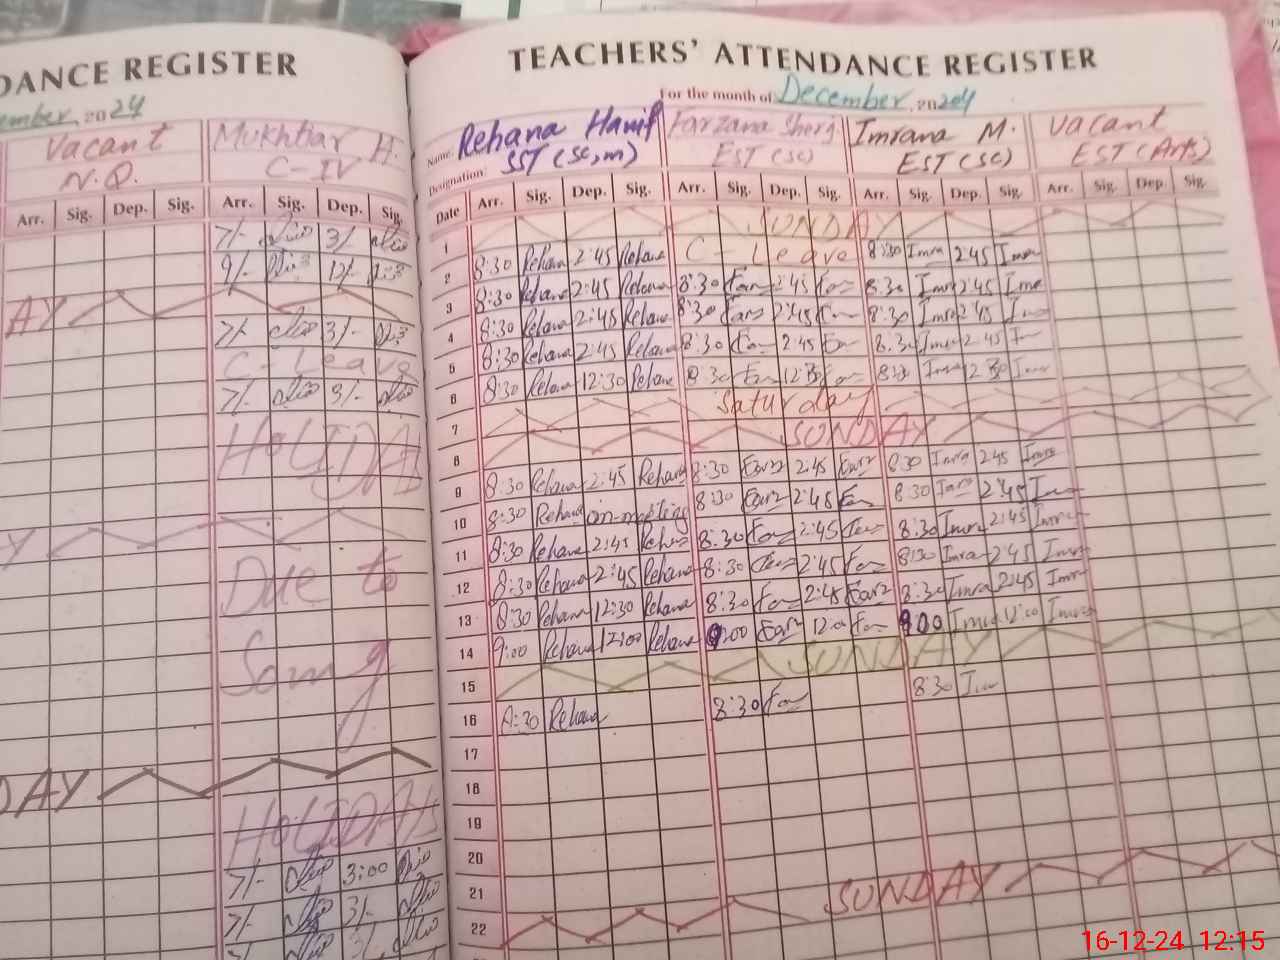 DANCE REGISTER
ember, 2024
Vacant Mukhtiar H.
N.Q. C-IV
Arr. Sig. Dep. Sig. Arr. Sig. Dep. Sig.
7/- 3/-
9/- 12/-
AY
7/- 3/-
C-Leave
7/- 3/-
HOLIDAY
Y
Due to
DAY
HOLIDAY
7/- 3:00
7/- 3/-
3/-
TEACHERS' ATTENDANCE REGISTER
For the month of December, 2024
Name: Rehana Hanif Farzana Imrana M. Vacant
Designation: SST (Sc,m) EST (SC) EST (SC) EST (Arts)
Date Arr. Sig. Dep. Sig. Arr. Sig. Dep. Sig. Arr. Sig. Dep. Sig. Arr. Sig. Dep. Sig.
1 SUNDAY
2 8:30 Rehana 2:45 Rehana C-Leave 8:30 Imra 2:45 Imra
3 8:30 Rehana 2:45 Rehana 8:30 Far 2:45 Far 8:30 Imra 2:45 Imra
4 8:30 Rehana 2:45 Rehana 8:30 Far 2:45 Far 8:30 Imra 2:45
5 8:30 Rehana 2:45 Rehana 8:30 Far 2:45 Far 8:30 Imra 2:45
6 8:30 Rehana 12:30 Rehana 8:30 Far 12:30 Far 8:30 Imra 12:30
7 Saturday
8 SUNDAY
9 8:30 Rehana 2:45 Rehana 8:30 Farz 2:45 Farz 8:30 Imra 2:45 Imra
10 8:30 Rehana on-meeting 8:30 Farz 2:45 Far 8:30 Imra 2:45
11 8:30 Rehana 2:45 Rehana 8:30 Far 2:45 Far 8:30 Imra 2:45 Imra
12 8:30 Rehana 2:45 Rehana 8:30 Far 2:45 Far 8:30 Imra 2:45 Imra
13 8:30 Rehana 12:30 Rehana 8:30 Far 2:45 Farz 8:30 Imra 2:45 Imra
14 9:00 Rehana 12:00 Rehana 9:00 Farz 12:0 Far 9:00 Imra 12:00 Imra
15 SUNDAY
16 8:30 Rehana 8:30 Far 8:30
17
18
19
20
21
22 SUNDAY
16-12-24 12:15